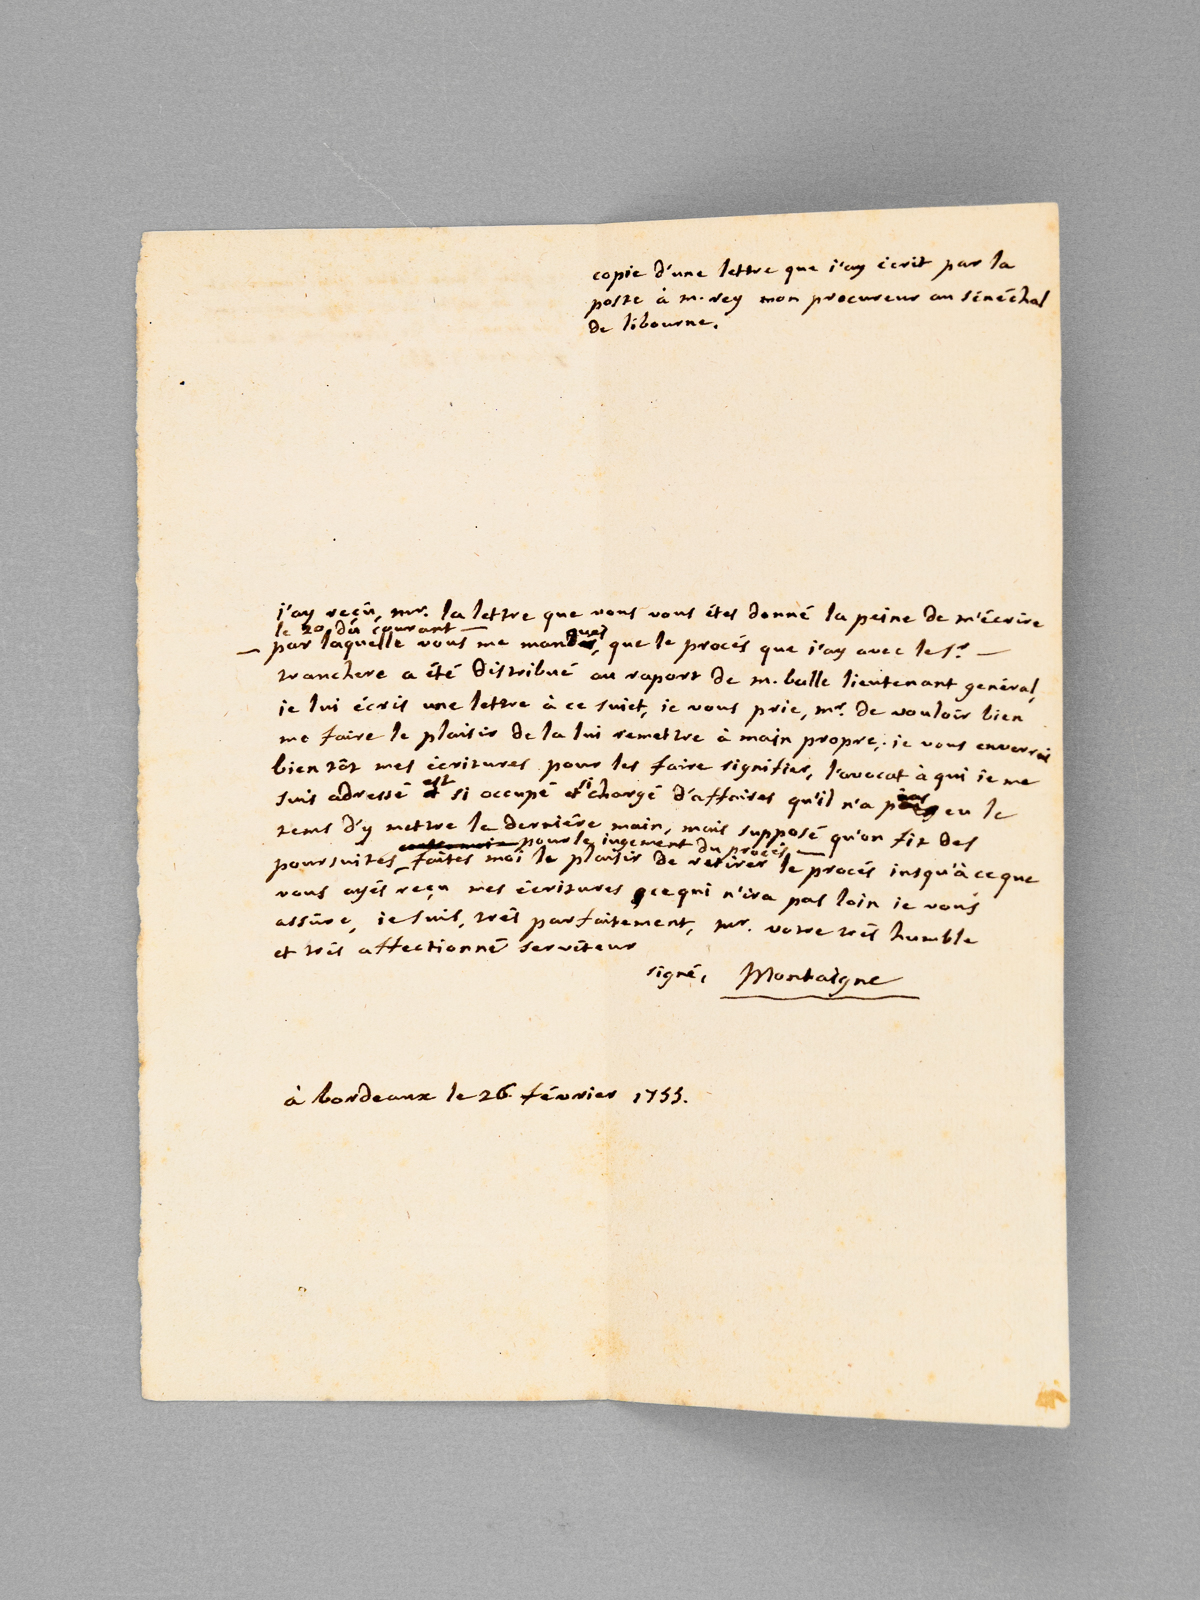 copie d'une lettre que j'ay écrit par la
poste à m. rey mon procureur au sénéchal
de libourne.
j'ay reçû, mr. la lettre que vous vous étes donné la peine de m'écrire
le 20 du courant —
— par laquelle vous me mandés, que le procés que j'ay avec le sr. —
tranchere a été distribué au raport de m. balle lieutenant général,
je lui écris une lettre à ce sujet, je vous prie, mr. de vouloir bien
me faire le plaisir de la lui remettre à main propre, je vous enverrai
bien tôt mes écritures pour les faire signifier, l'avocat à qui je me
suis adressé est si occupé et si chargé d'affaires qu'il n'a pas eu le
tems d'y mettre la derniére main, mais supposé qu'on fit des
pour le jugement du procés —
poursuites, faites moi le plaisir de retirer le procés jusqu'à ce que
vous ayés reçu mes écritures, ce qui n'ira pas loin je vous
assûre, je suis, trés parfaitement, mr. votre trés humble
et trés affectionné serviteur
signé, Montaigne
à bordeaux le 26 février 1755.